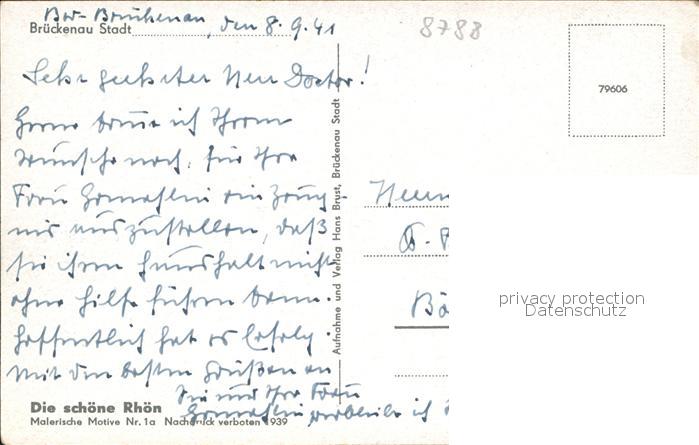 Bad-Brückenau, den 8.9.41
Brückenau Stadt
8788
79606
Sehr geehrter Herr Doctor!
Gerne komme ich Ihrem
Wunsche nach, für Ihre
Frau Gemahlin ein Zeug-
nis auszustellen, daß
sie ihren Haushalt nicht
ohne Hilfe führen kann.
Hoffentlich hat es Erfolg.
Mit den besten Grüßen an
Sie und Ihre Frau
Gemahlin verbleibe ich
Aufnahme und Verlag Hans Brust, Brückenau Stadt
Herrn
Bä
privacy protection
Datenschutz
Die schöne Rhön
Malerische Motive Nr. 1a Nachdruck verboten 1939